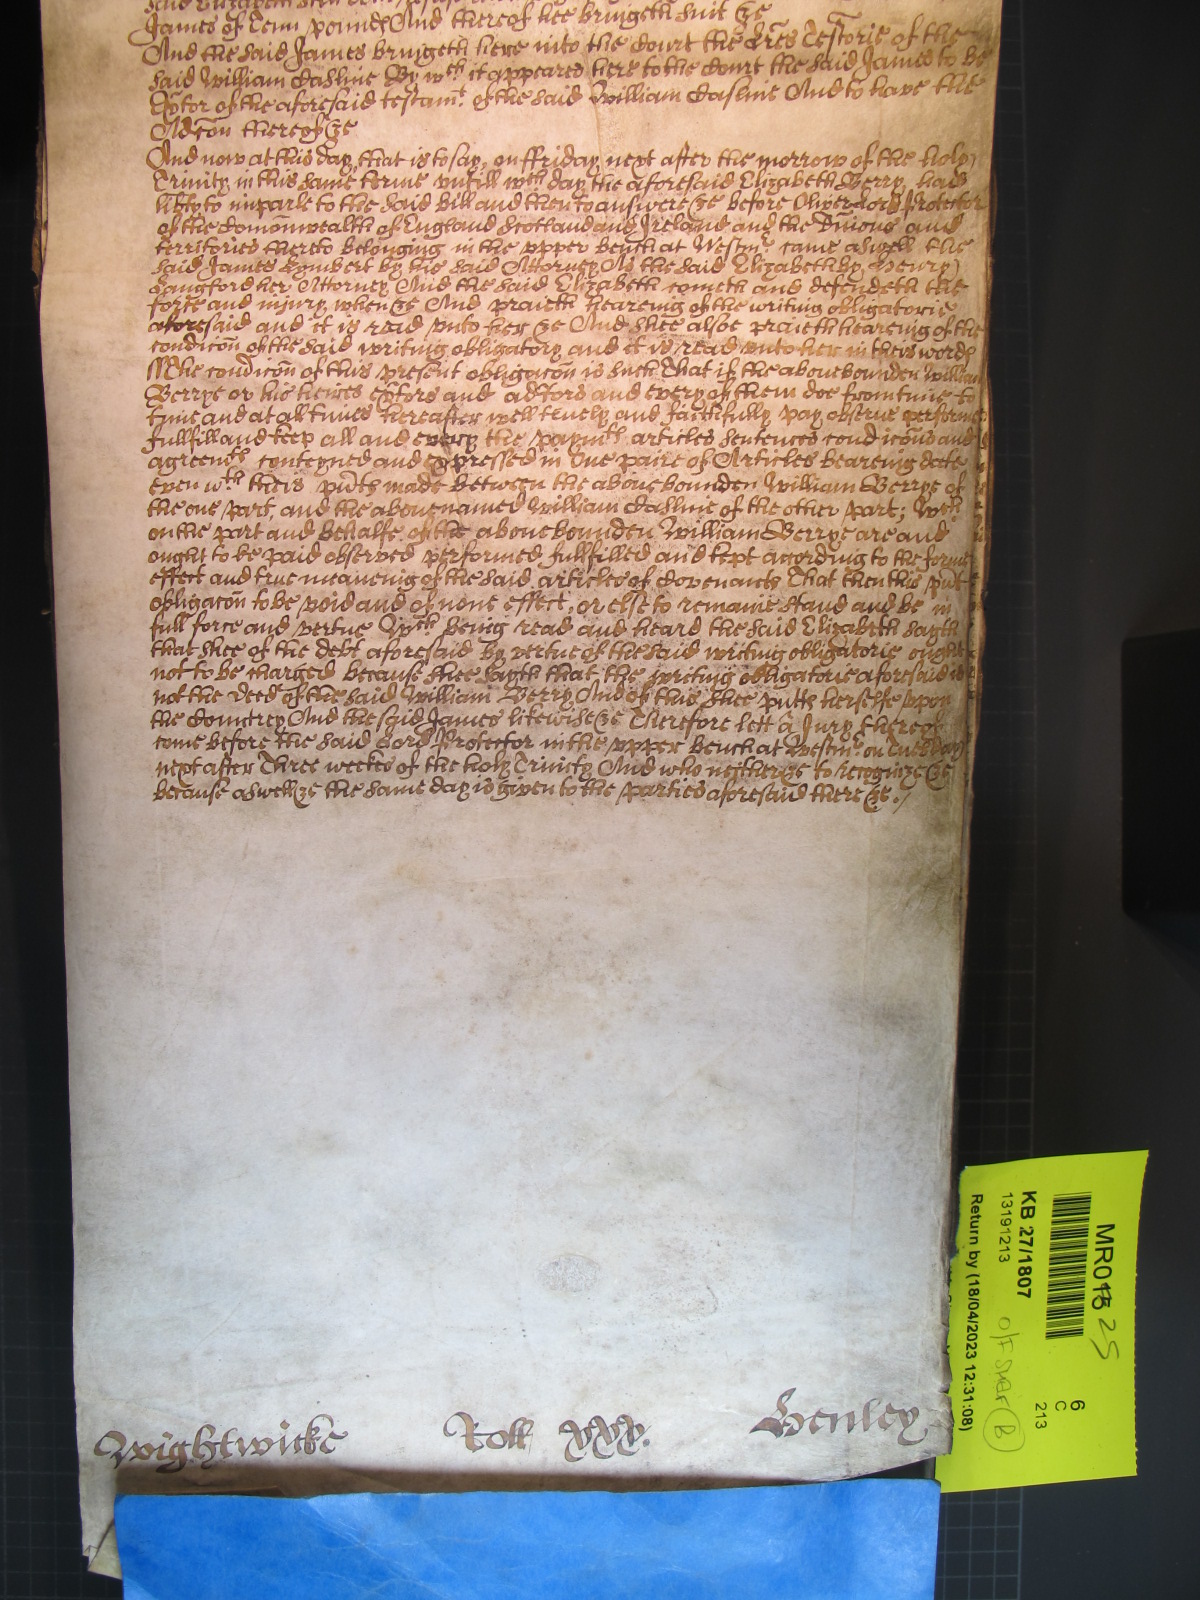 James of Tenn pounds And thereof hee bringeth suit &c
And the said James bringeth here into the Court the Lres Testorie of the
said William Dasline By wch it appeared here to the Court the said James to be
Exĉtor of the aforesaid testamt. of the said William Dasline And to have the
Adcōn thereof &c
And now at this day, that is to say, on ffriday next after the morrow of the holy
Trinity in this same terme vntill wch day the aforesaid Elizabeth Berry, had
lib̃ty to imparle to the said Bill and then to answere &c before Oliver Lord Protector
of the Comōnwealth of England Scotland and Ireland and the Dm̄ions and
territories thereto belonging in the vpper bench at Westmr. came aswell the
said James Lambert by his said Attorney As the said Elizabeth by Henry
Langford her Attorney And the said Elizabeth cometh and defendeth the
force and injury when &c And praieth heareing of the writing obligatorie
aforesaid and it is read vnto her &c And shee alsoe praieth heareing of the
condicōn of the said writing obligatory and it is read vnto her in theis words
The condicōn of this present obligacōn is such That if the abovebounden William
Berrye or his heires exc̄tors and adtors and every of them doe from time to
tyme and at all times hereafter well truely and faithfully pay observe performe
fullfill and keep all and every the paymts. articles sentences condicōns and
agreemts. conteyned and expressed in One paire of Articles beareing date
even wth theis pñts made betweene the abovebounden William Berrye of
the one part, and the abovenamed William Dasline of the other part; Wch
on the part and behalfe of the abovebounden William Berrye are and
ought to be paid observed performed fullfilled and kept according to the forme
effect and true meaneing of the said articles of Covenants That then this pñt
obligacōn to be void and of none effect, or else to remaine stand and be in
full force and vertue Wch being read and heard the said Elizabeth saith
that shee of the debt aforesaid by vertue of the said writing obligatorie ought
not to be charged because shee saith that the writing obligatorie aforesaid is
not the deed of the said William Berry And of this shee putts herselfe vpon
the Countrey And the said James likewise &c Therefore lett a Jury thereof
come before the said Lord Protector in the vpper bench at Westmr. on Tuesday
next after Three weekes of the holy Trinity And who neither &c to recognize &c
because aswell &c the same day is given to the parties aforesaid there &c./
Wightwicke Roll xxx. Henley
MR018 25
KB 27/1807
13191213
Return by (18/04/2023 12:31:08)
6
C
213
B